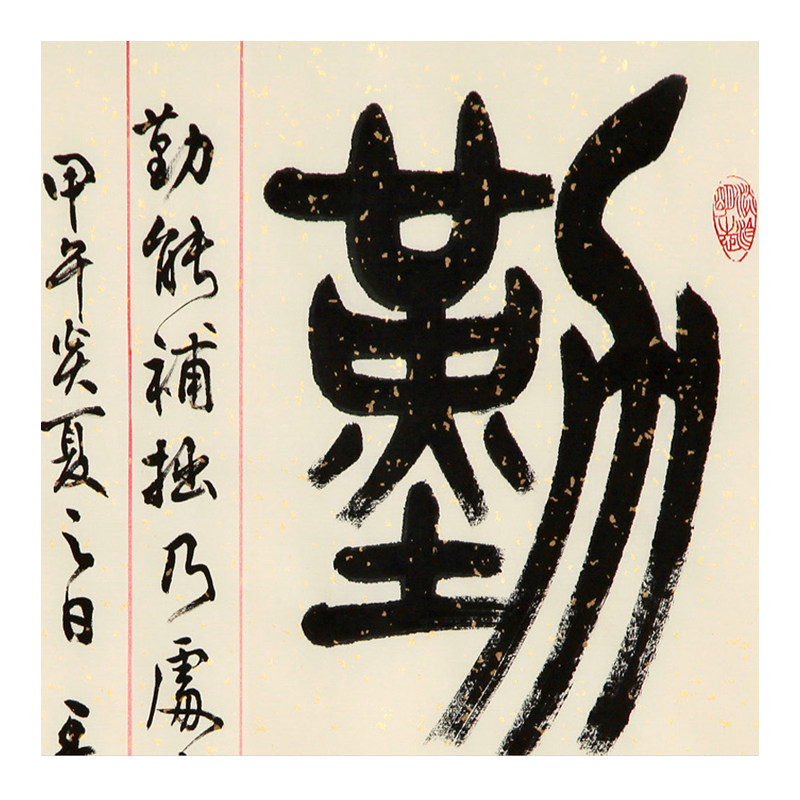 勤
勤能補拙乃處
甲午炎夏之日